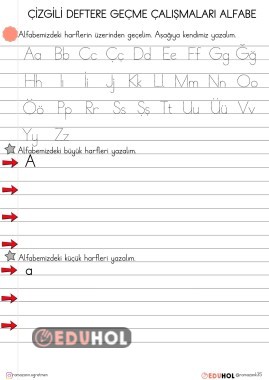 ÇİZGİLİ DEFTERE GEÇME ÇALIŞMALARI ALFABE
Alfabemizdeki harflerin üzerinden geçelim. Aşağıya kendimiz yazalım.
Aa Bb Cc Çç Dd Ee Ff Gg Ğğ
Hh Iı İi Jj Kk Ll Mm Nn Oo
Öö Pp Rr Ss Şş Tt Uu Üü Vv
Yy Zz
Alfabemizdeki büyük harfleri yazalım.
A
Alfabemizdeki küçük harfleri yazalım.
a
EDUHOL
EDUHOL